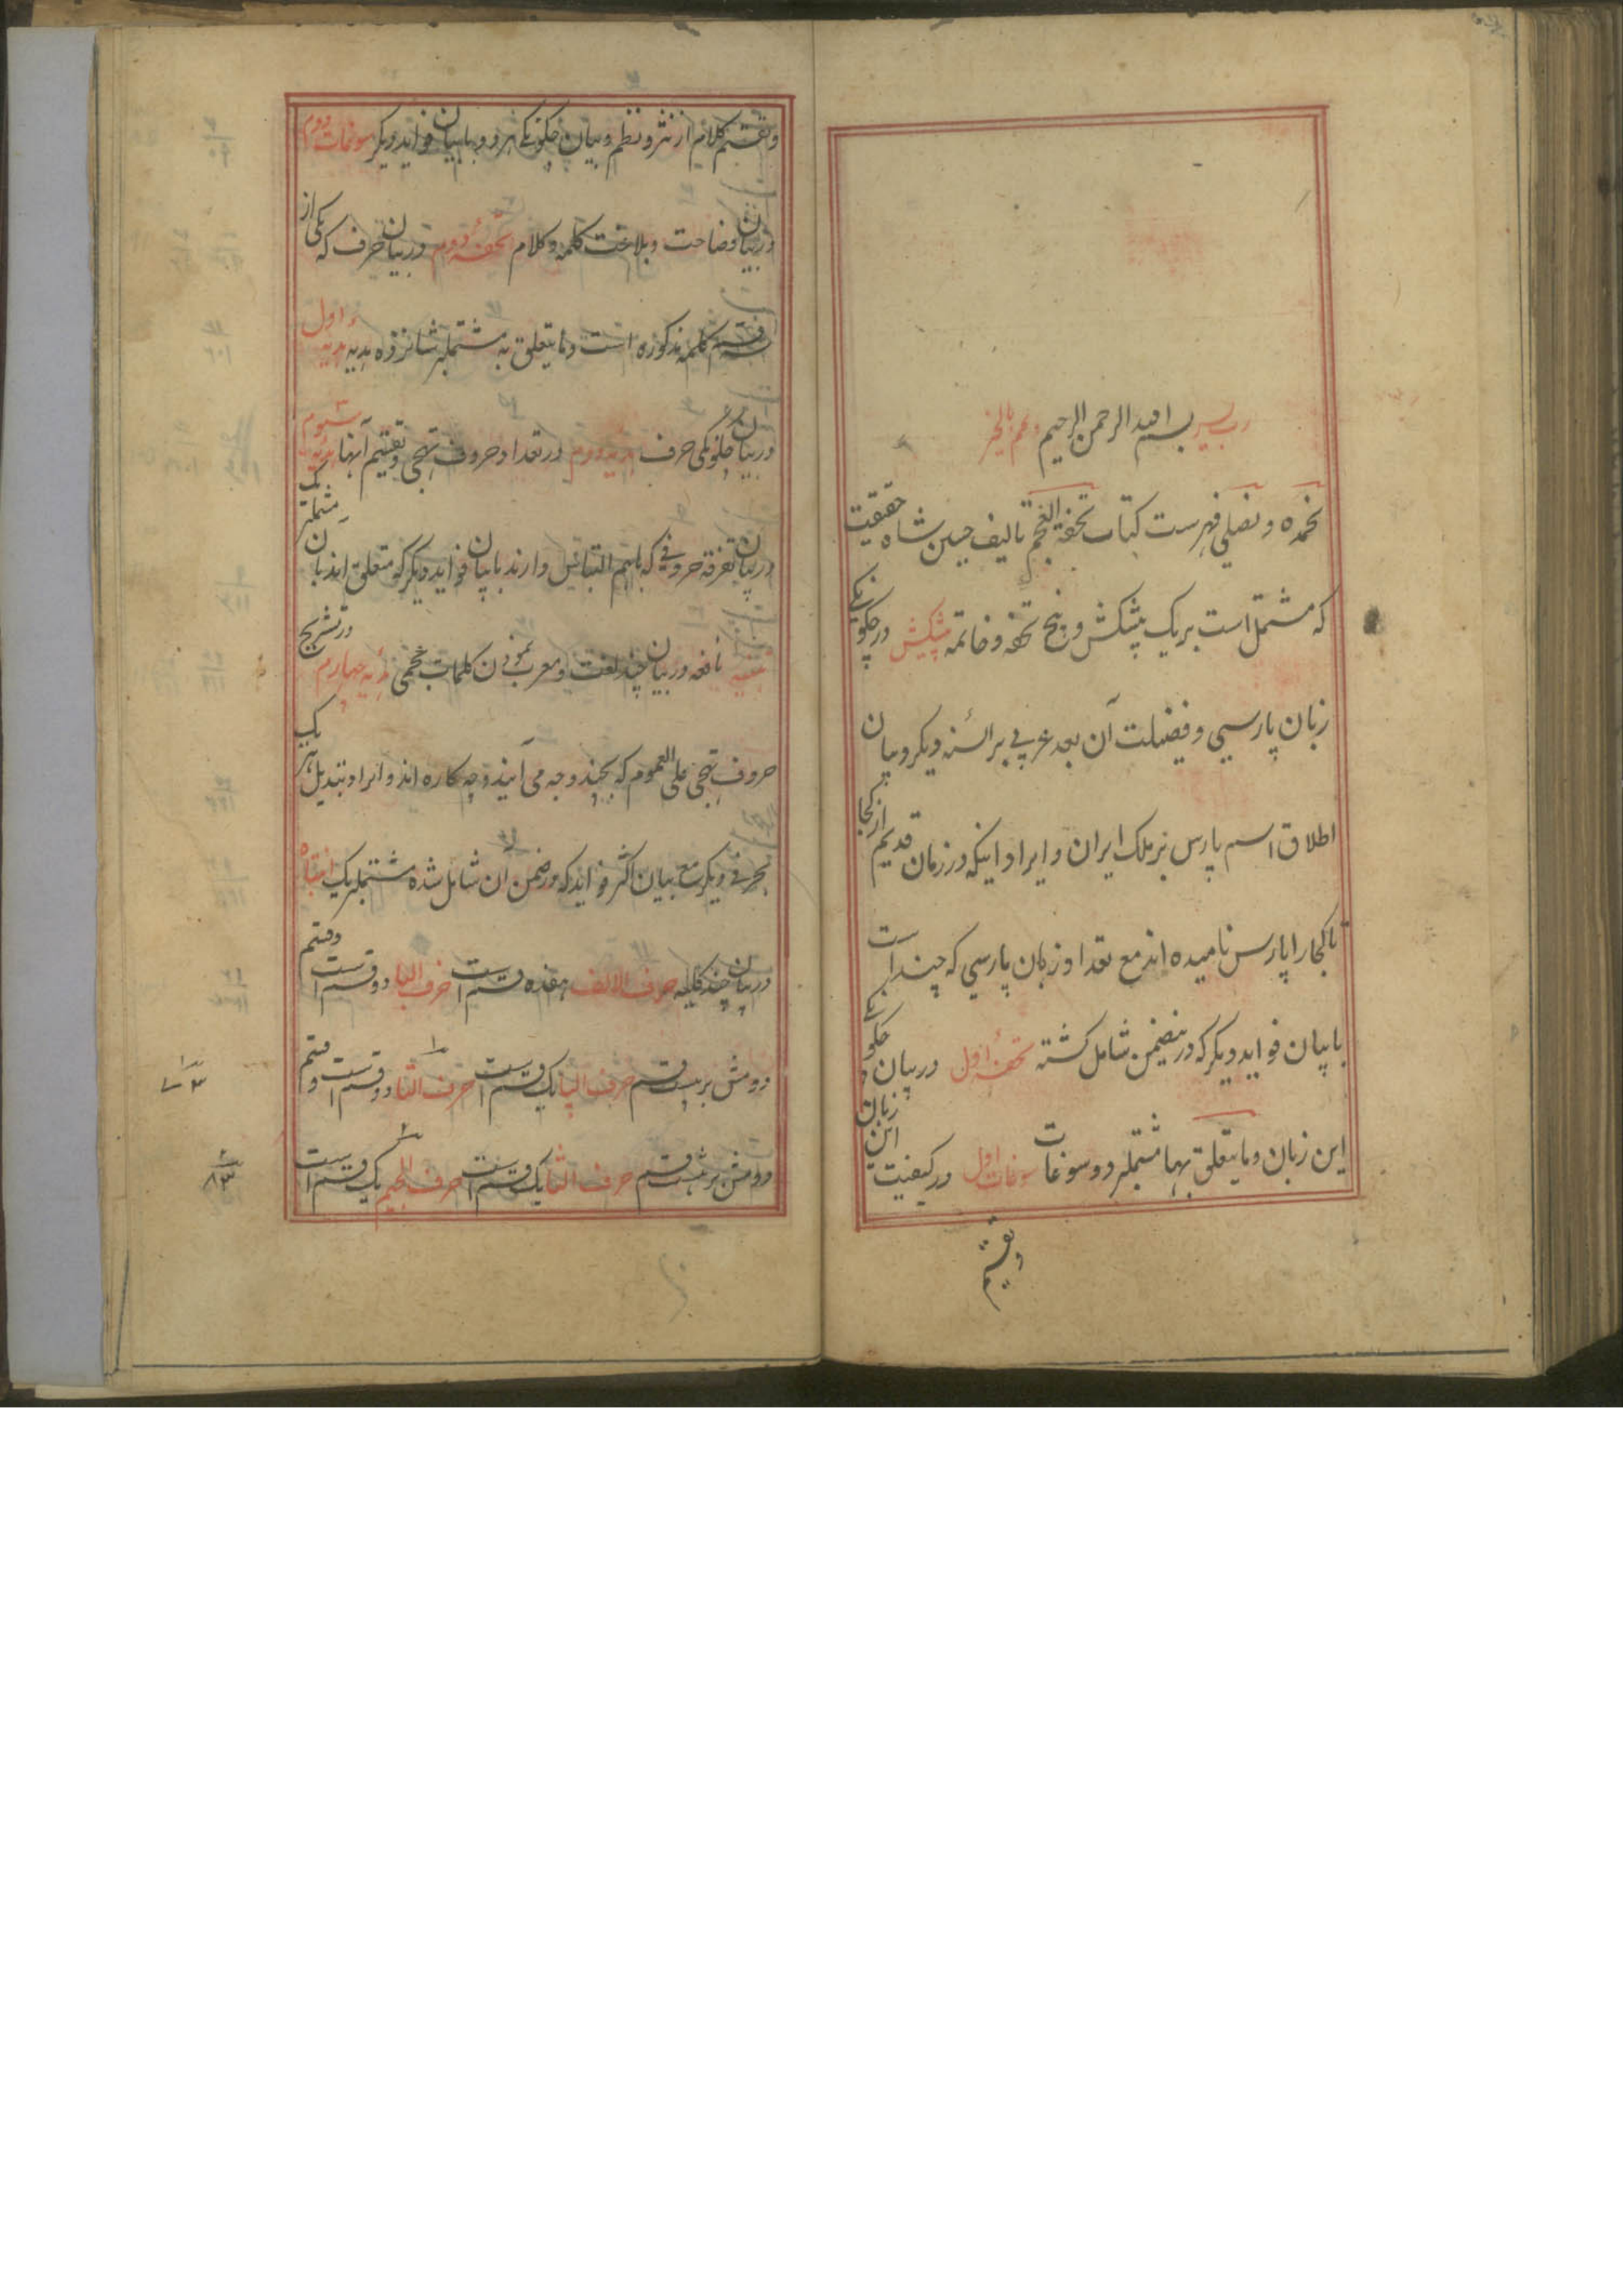 رب یسر بسم الله الرحمن الرحیم وتمم بالخیر
نحمده و نصلی فهرست کتاب تحفة العجم تالیف حسین شاه حقیقت
که مشتمل است بر یک پیشکش و پنج تحفه و خاتمه پیشکش در چگونگی
زبان پارسی و فضیلت آن بعد عربی بر السنه دیگر و بیان
اطلاق اسم پارس بر ملک ایران و ایراد اینکه در زمان قدیم از کجا
تا کجا را پارس نامیده اند مع تعداد زبان پارسی که چند است
با بیان فواید دیگر که در ینضمن شامل گشته تحفهٔ اول در بیان چگونگی
این زبان و ما یتعلق بها مشتمل بر دو سوغات سوغات اول در کیفیت این زبان
و تقسیم
و تقسیم کلام از نثر و نظم و بیان چگونگی هر دو با بیان فواید دیگر سوغات دوم
در بیان فصاحت و بلاغت کلمه و کلام تحفهٔ دوم در بیان حرف که یکی از
سه قسم کلمه مذکوره است و ما یتعلق به مشتمل بر شانزده هدیه هدیه اول
در بیان چگونگی حرف هدیه دوم در تعداد حروف تهجی و تقسیم آنها هدیه سوم
در بیان تفرقه حروفی که باهم التباس دارند با بیان فواید دیگر که متعلق اند بان مشتمل بر یک
تنبیه نافعه در بیان چند لغت و معرب نمودن کلمات عجمی هدیه چهارم در تشریح
حروف تهجی علی العموم که بچند وجه می آیند و چه کاره اند و ایراد تبدیل هر یک
بحرفی دیگر مع بیان اکثر فواید که در ضمن آن شامل شده مشتمل بر یک انتباه
در بیان چند کلیه حرف الالف هفده قسم است حرف البا دو قسم است و قسم
دومش بر بیست قسم حرف الپا یک قسم است حرف التا دو قسم است و قسم
دومش بر هشت قسم حرف الثا یک قسم است حرف الجیم یک قسم است